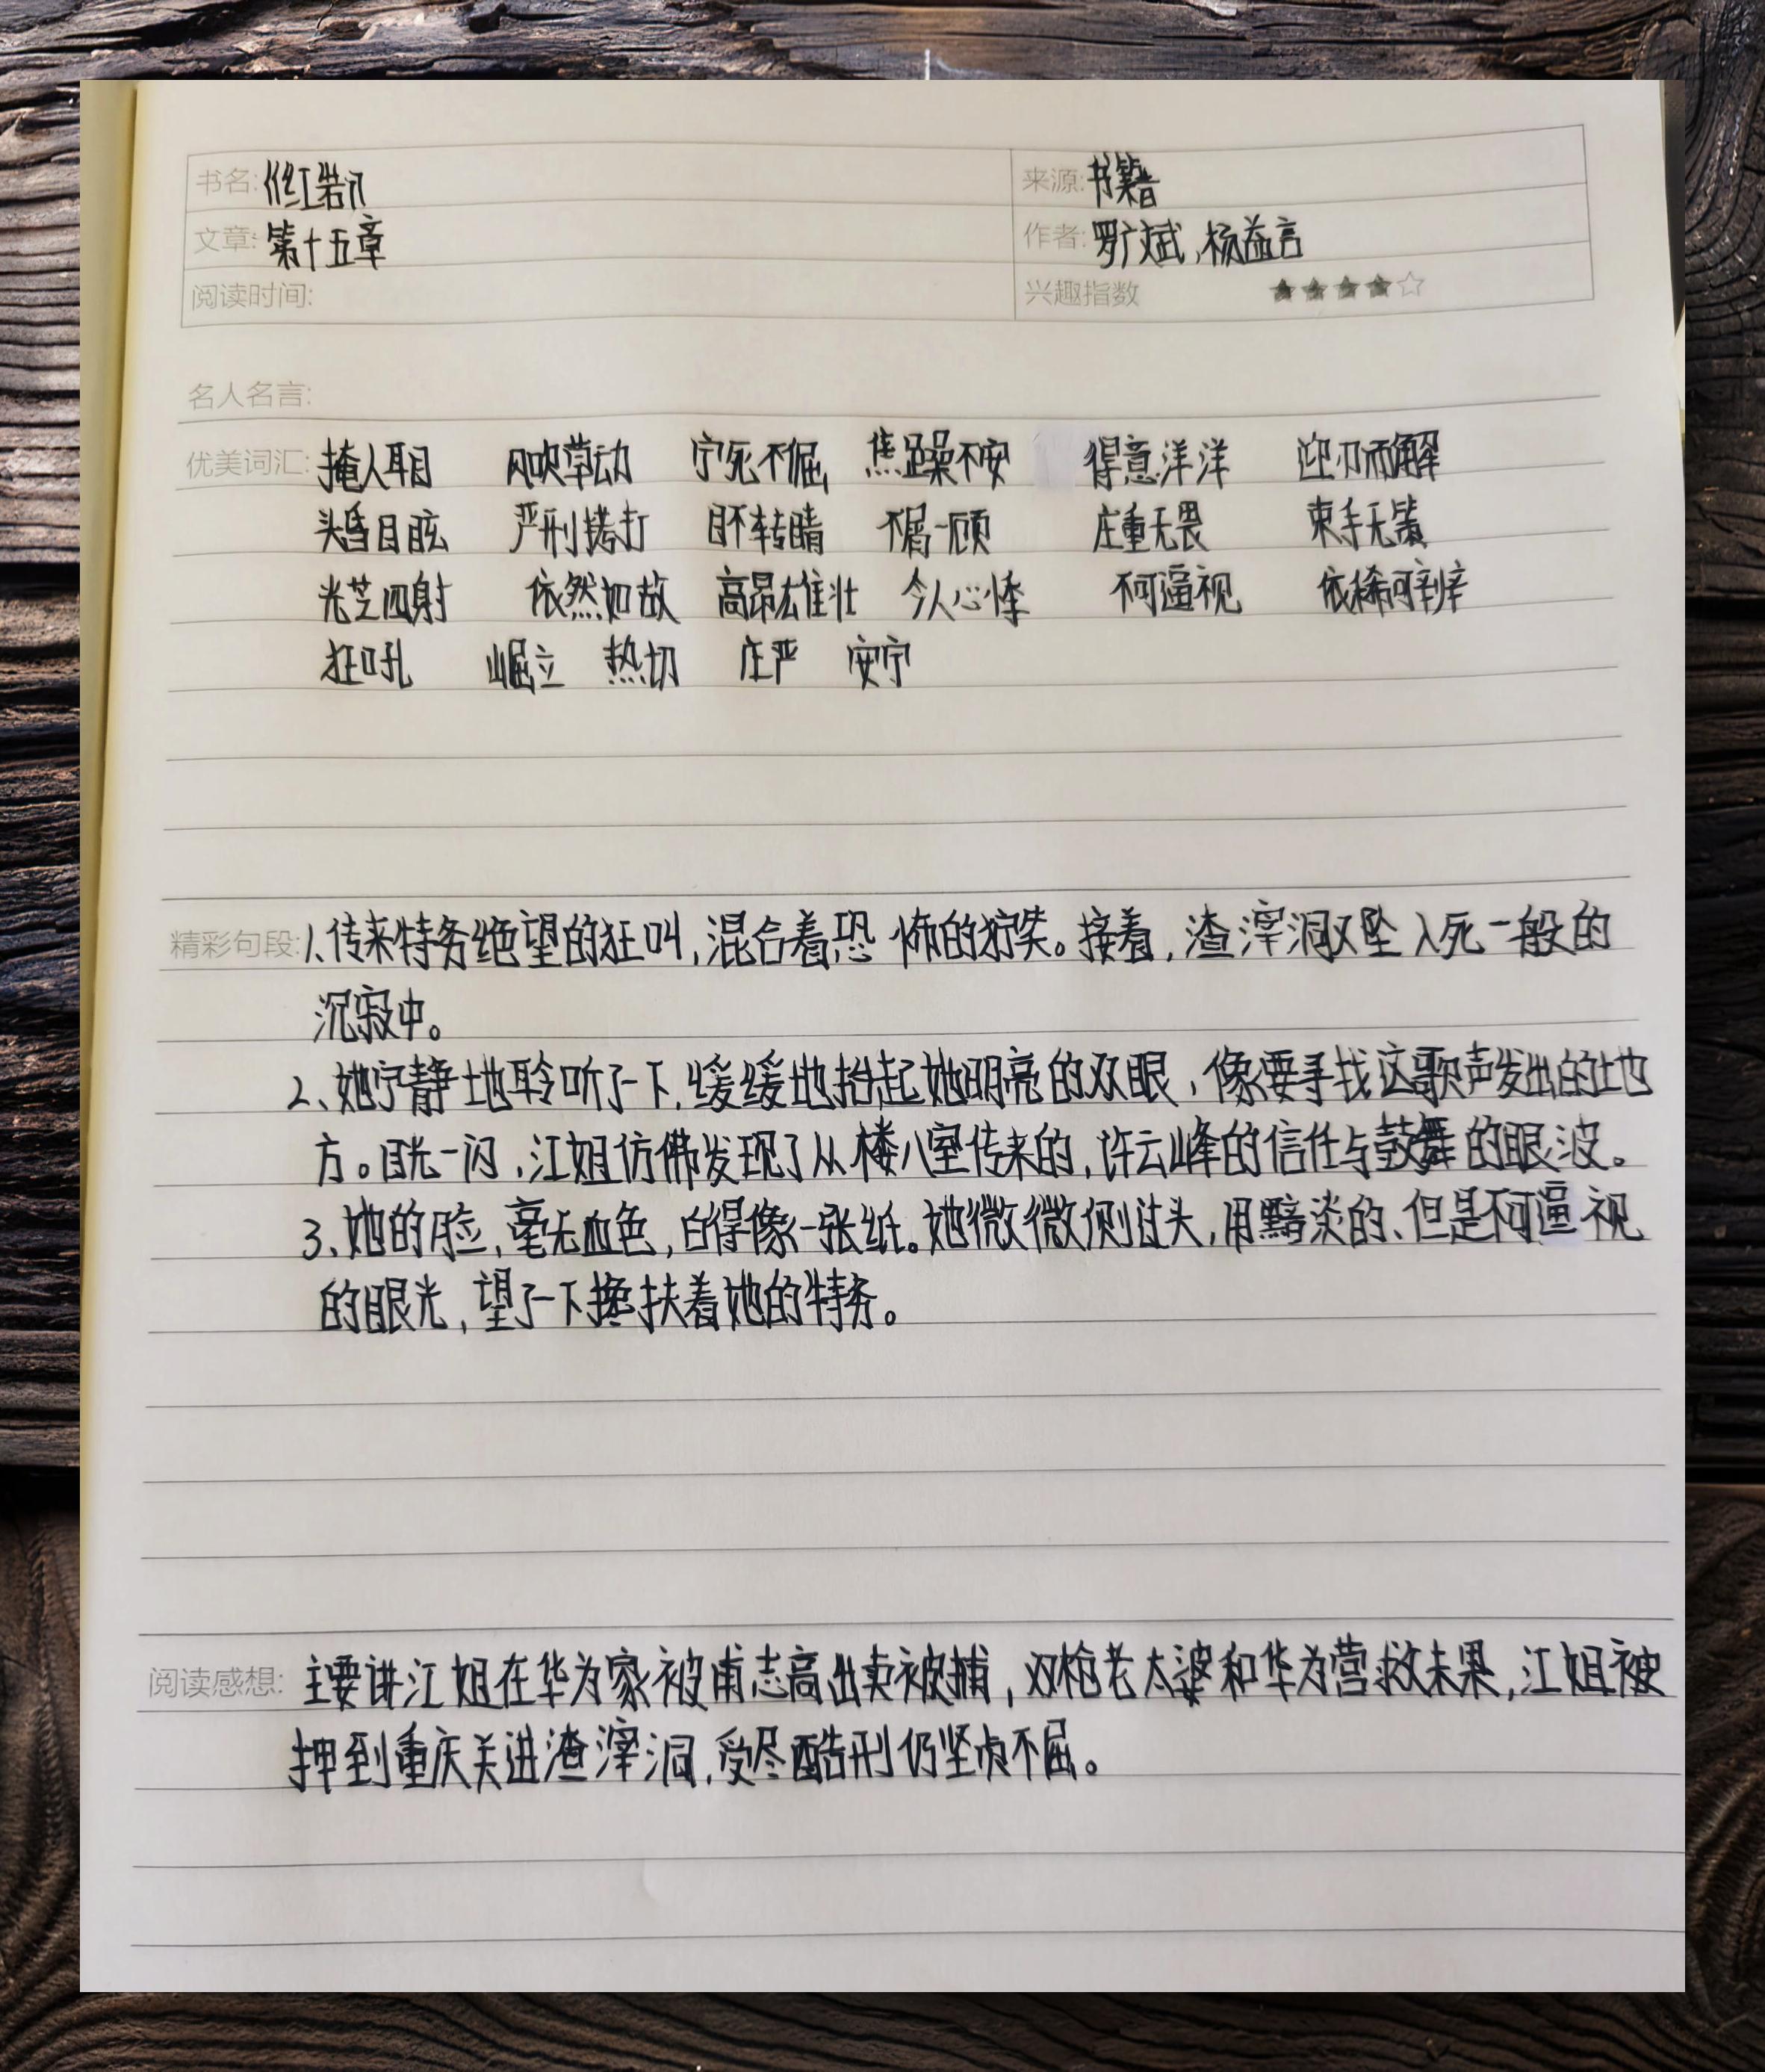 书名:《红岩》 来源:书籍
文章:第十五章 作者:罗广斌,杨益言
阅读时间: 兴趣指数 ★★★★☆
名人名言:
优美词汇:掩人耳目 风吹草动 宁死不倔 焦躁不安 得意洋洋 迎刃而解
头昏目眩 严刑拷打 目不转睛 不屑一顾 庄重无畏 束手无策
光芒四射 依然如故 高昂雄壮 令人心悸 不可逼视 依稀可辨
狂吼 崛立 热切 庄严 安宁
精彩句段:1、传来特务绝望的狂叫,混合着恐怖的狞笑。接着,渣滓洞又坠入死一般的
沉寂中。
2、她宁静地聆听了一下,缓缓地抬起她明亮的双眼,像要寻找这歌声发出的地
方。目光一闪,江姐仿佛发现了从楼八室传来的,许云峰的信任与鼓舞的眼波。
3、她的脸,毫无血色,白得像一张纸。她微微侧过头,用黯淡的、但是不可逼视
的眼光,望了一下搀扶着她的特务。
阅读感想:主要讲江姐在华为家被甫志高出卖被捕,双枪老太婆和华为营救未果,江姐被
押到重庆关进渣滓洞,受尽酷刑仍坚贞不屈。